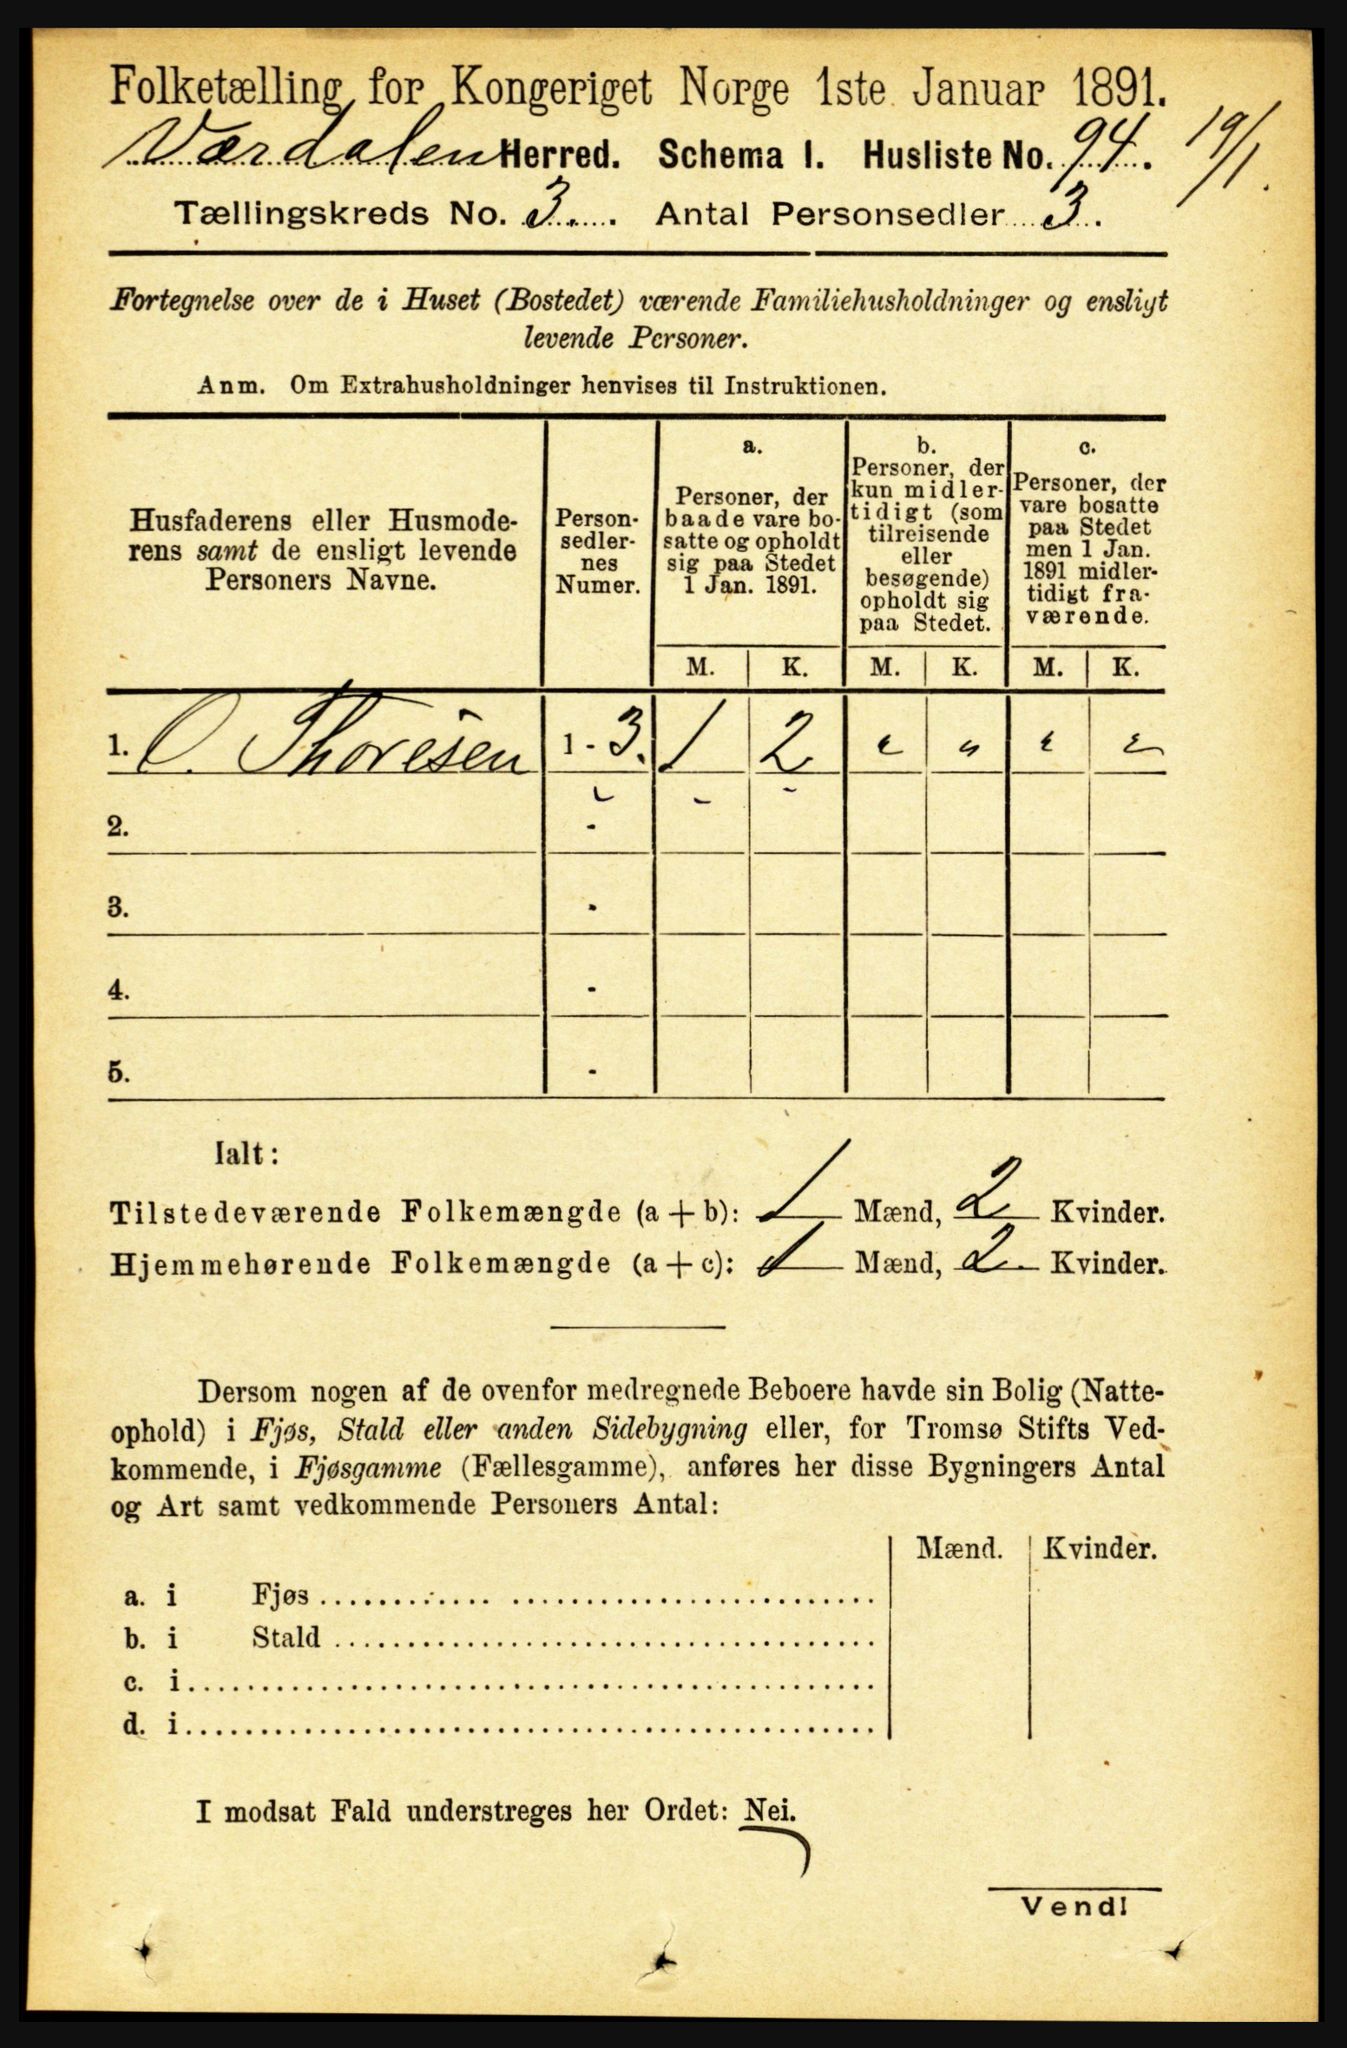 Folketælling for Kongeriget Norge 1ste Januar 1891.
Værdalen Herred. Schema I. Husliste No. 94. 19/1.
Tællingskreds No. 3. Antal Personsedler 3.
Fortegnelse over de i Huset (Bostedet) værende Familiehusholdninger og ensligt
levende Personer.
Anm. Om Extrahusholdninger henvises til Instruktionen.
Husfaderens eller Husmode-
rens samt de ensligt levende
Personers Navne.
Person-
sedler-
nes
Numer.
a.
Personer, der
baade vare bo-
satte og opholdt
sig paa Stedet
1 Jan. 1891.
b.
Personer, der
kun midler-
tidigt (som
tilreisende
eller
besøgende)
opholdt sig
paa Stedet.
c.
Personer, der
vare bosatte
paa Stedet
men 1 Jan.
1891 midler-
tidigt fra-
værende.
M. K. M. K. M. K.
1. O. Thoresen 1 - 3. 1 2 " " " "
2. -
3. -
4. -
5. -
Ialt:
Tilstedeværende Folkemængde (a + b): 1 Mænd, 2 Kvinder.
Hjemmehørende Folkemængde (a + c): 1 Mænd, 2 Kvinder.
Dersom nogen af de ovenfor medregnede Beboere havde sin Bolig (Natte-
ophold) i Fjøs, Stald eller anden Sidebygning eller, for Tromsø Stifts Ved-
kommende, i Fjøsgamme (Fællesgamme), anføres her disse Bygningers Antal
og Art samt vedkommende Personers Antal:
Mænd. Kvinder.
a. i Fjøs
b. i Stald
c. i
d. i
I modsat Fald understreges her Ordet: Nei.
Vend!